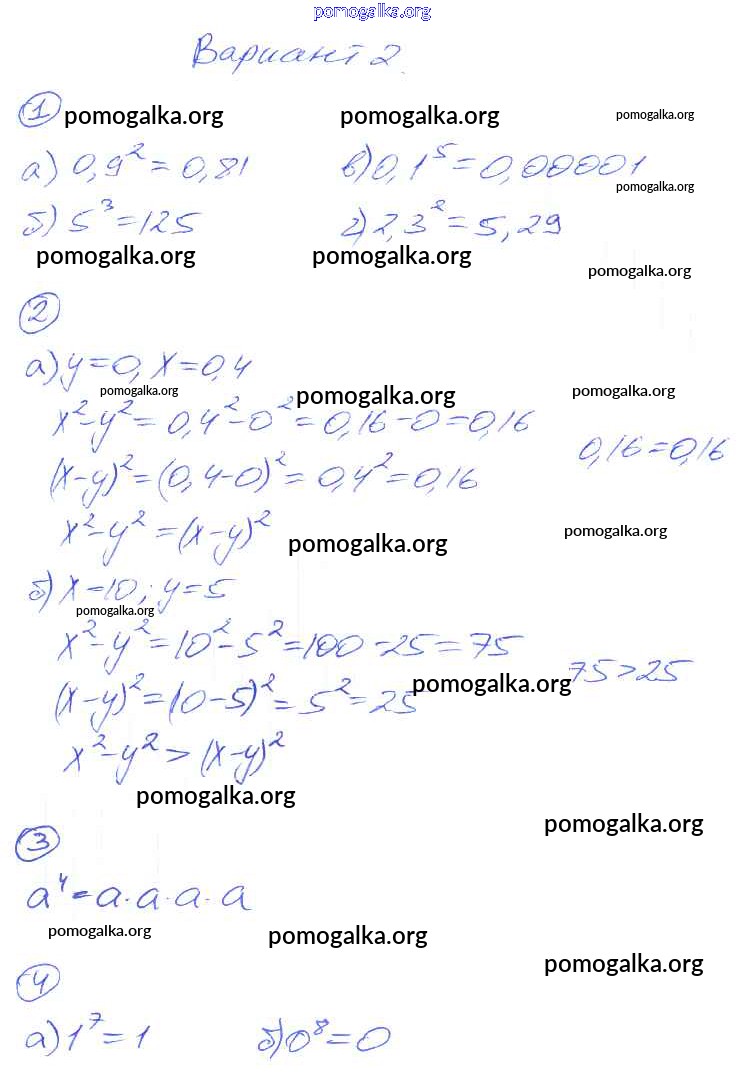 pomogalka.org
Вариант 2.
1 pomogalka.org pomogalka.org pomogalka.org
а) 0,9² = 0,81 в) 0,1⁵ = 0,00001
pomogalka.org
б) 5³ = 125 г) 2,3² = 5,29
pomogalka.org pomogalka.org pomogalka.org
2
а) y = 0, x = 0,4
pomogalka.org pomogalka.org pomogalka.org
x² - y² = 0,4² - 0² = 0,16 - 0 = 0,16
0,16 = 0,16
(x - y)² = (0,4 - 0)² = 0,4² = 0,16
x² - y² = (x - y)²
pomogalka.org pomogalka.org
б) x = 10; y = 5
pomogalka.org
x² - y² = 10² - 5² = 100 - 25 = 75
75 > 25
(x - y)² = (10 - 5)² = 5² = 25 pomogalka.org
x² - y² > (x - y)²
pomogalka.org pomogalka.org
3
a⁴ = a · a · a · a
pomogalka.org pomogalka.org pomogalka.org
4
а) 1⁷ = 1 б) 0⁸ = 0